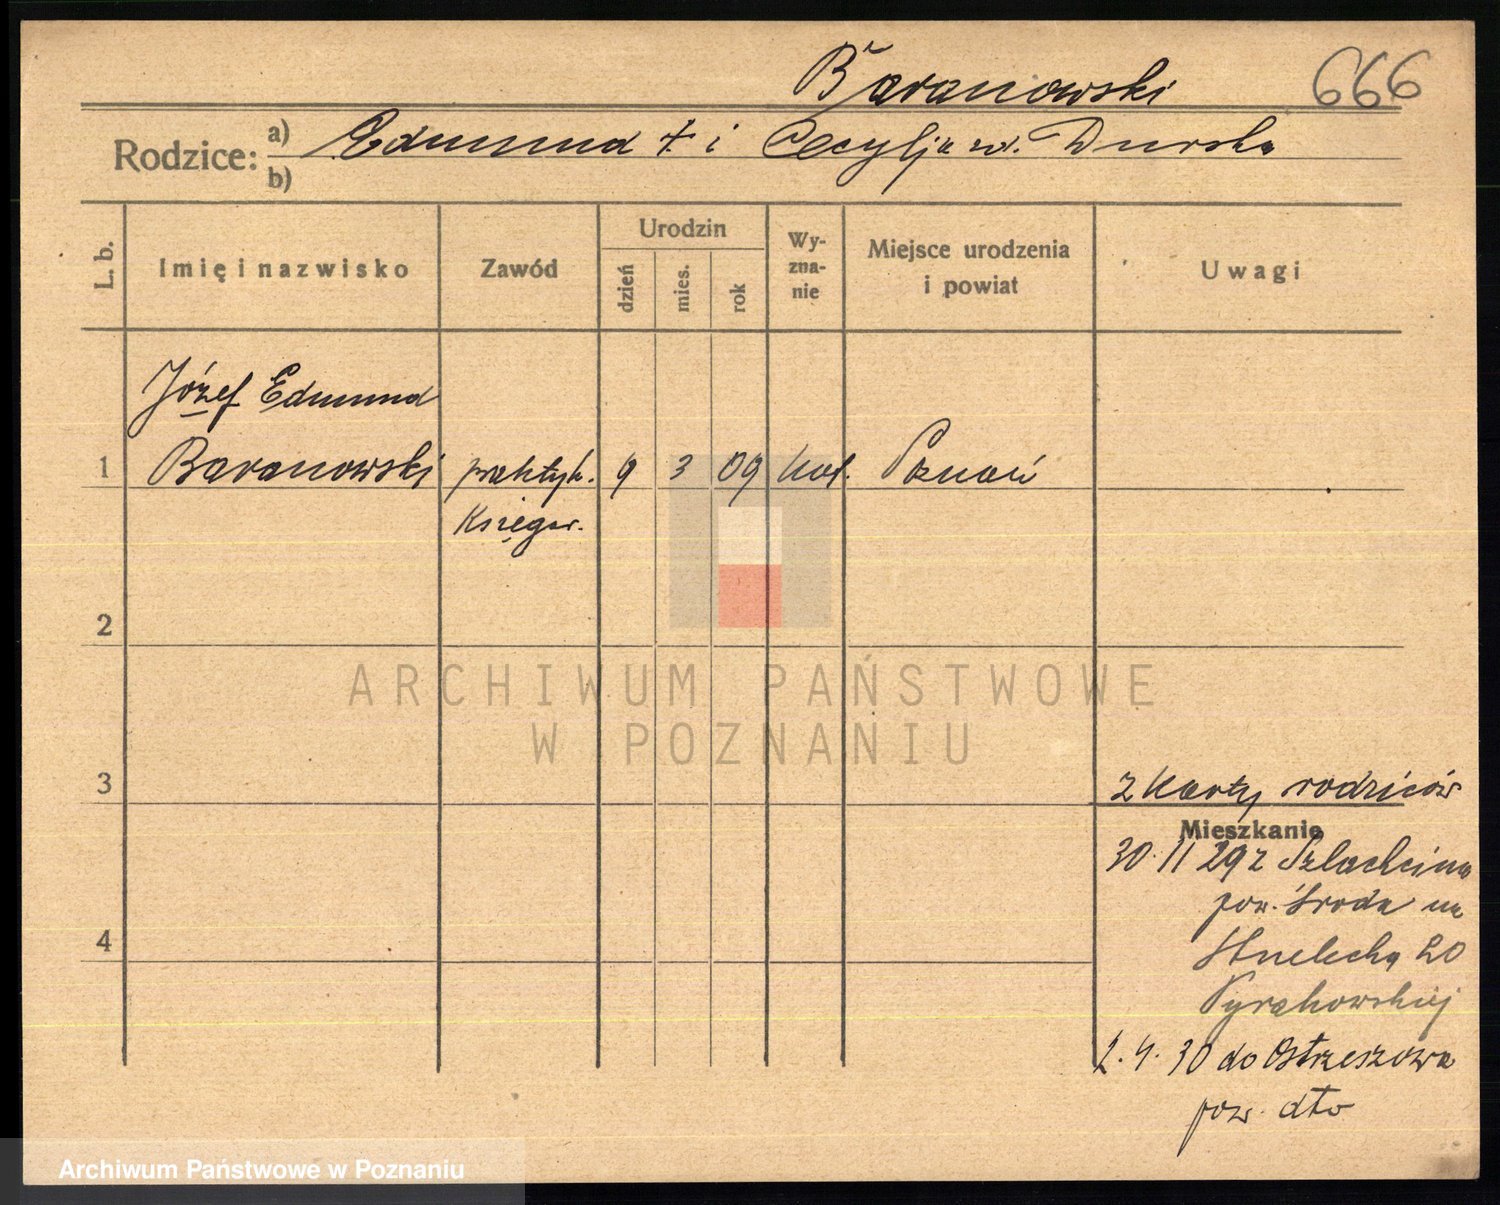 Baranowski 666
Rodzice: a) Edmund † i Cecylja zd. Durska
b)
L. b. Imię i nazwisko Zawód Urodzin dzień mies. rok Wy-zna-nie Miejsce urodzenia i powiat Uwagi
Józef Edmund
1 Baranowski praktyk. 9 3 09 kat. Poznań
Księgar.
2
ARCHIWUM PAŃSTWOWE
W POZNANIU
3
z karty rodziców
Mieszkanie
30. 11 29 z Szlachcina
pow. Środa na
4
Strzelecką 20
2. 4. 30 do Ostrzeszowa
pow. dto
Archiwum Państwowe w Poznaniu